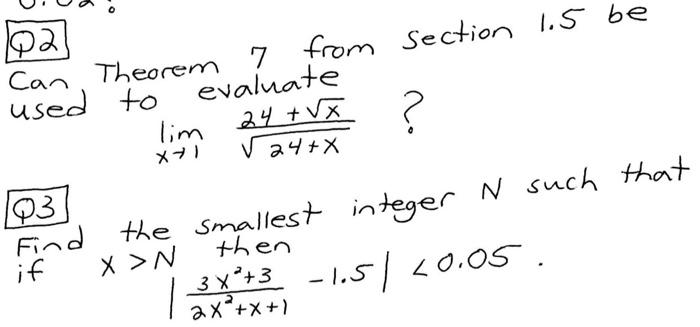 Q2
Can Theorem 7 from section 1.5 be
used to evaluate
lim x→1 (24 + √x) / √(24+x) ?
Q3
Find the smallest integer N such that
if x > N then
| (3x²+3) / (2x²+x+1) - 1.5 | < 0.05 .